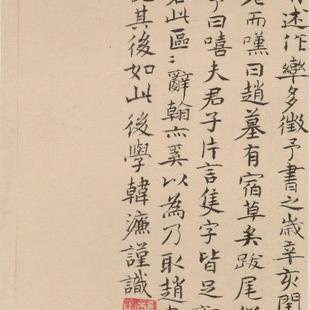 述作樂多徵予書之歲辛亥閏
而嘆曰趙墓有宿草矣跋尾
曰嘻夫君子片言隻字皆足
此區〻辭翰亦奚以為乃取趙
其後如此後學韓濂謹識